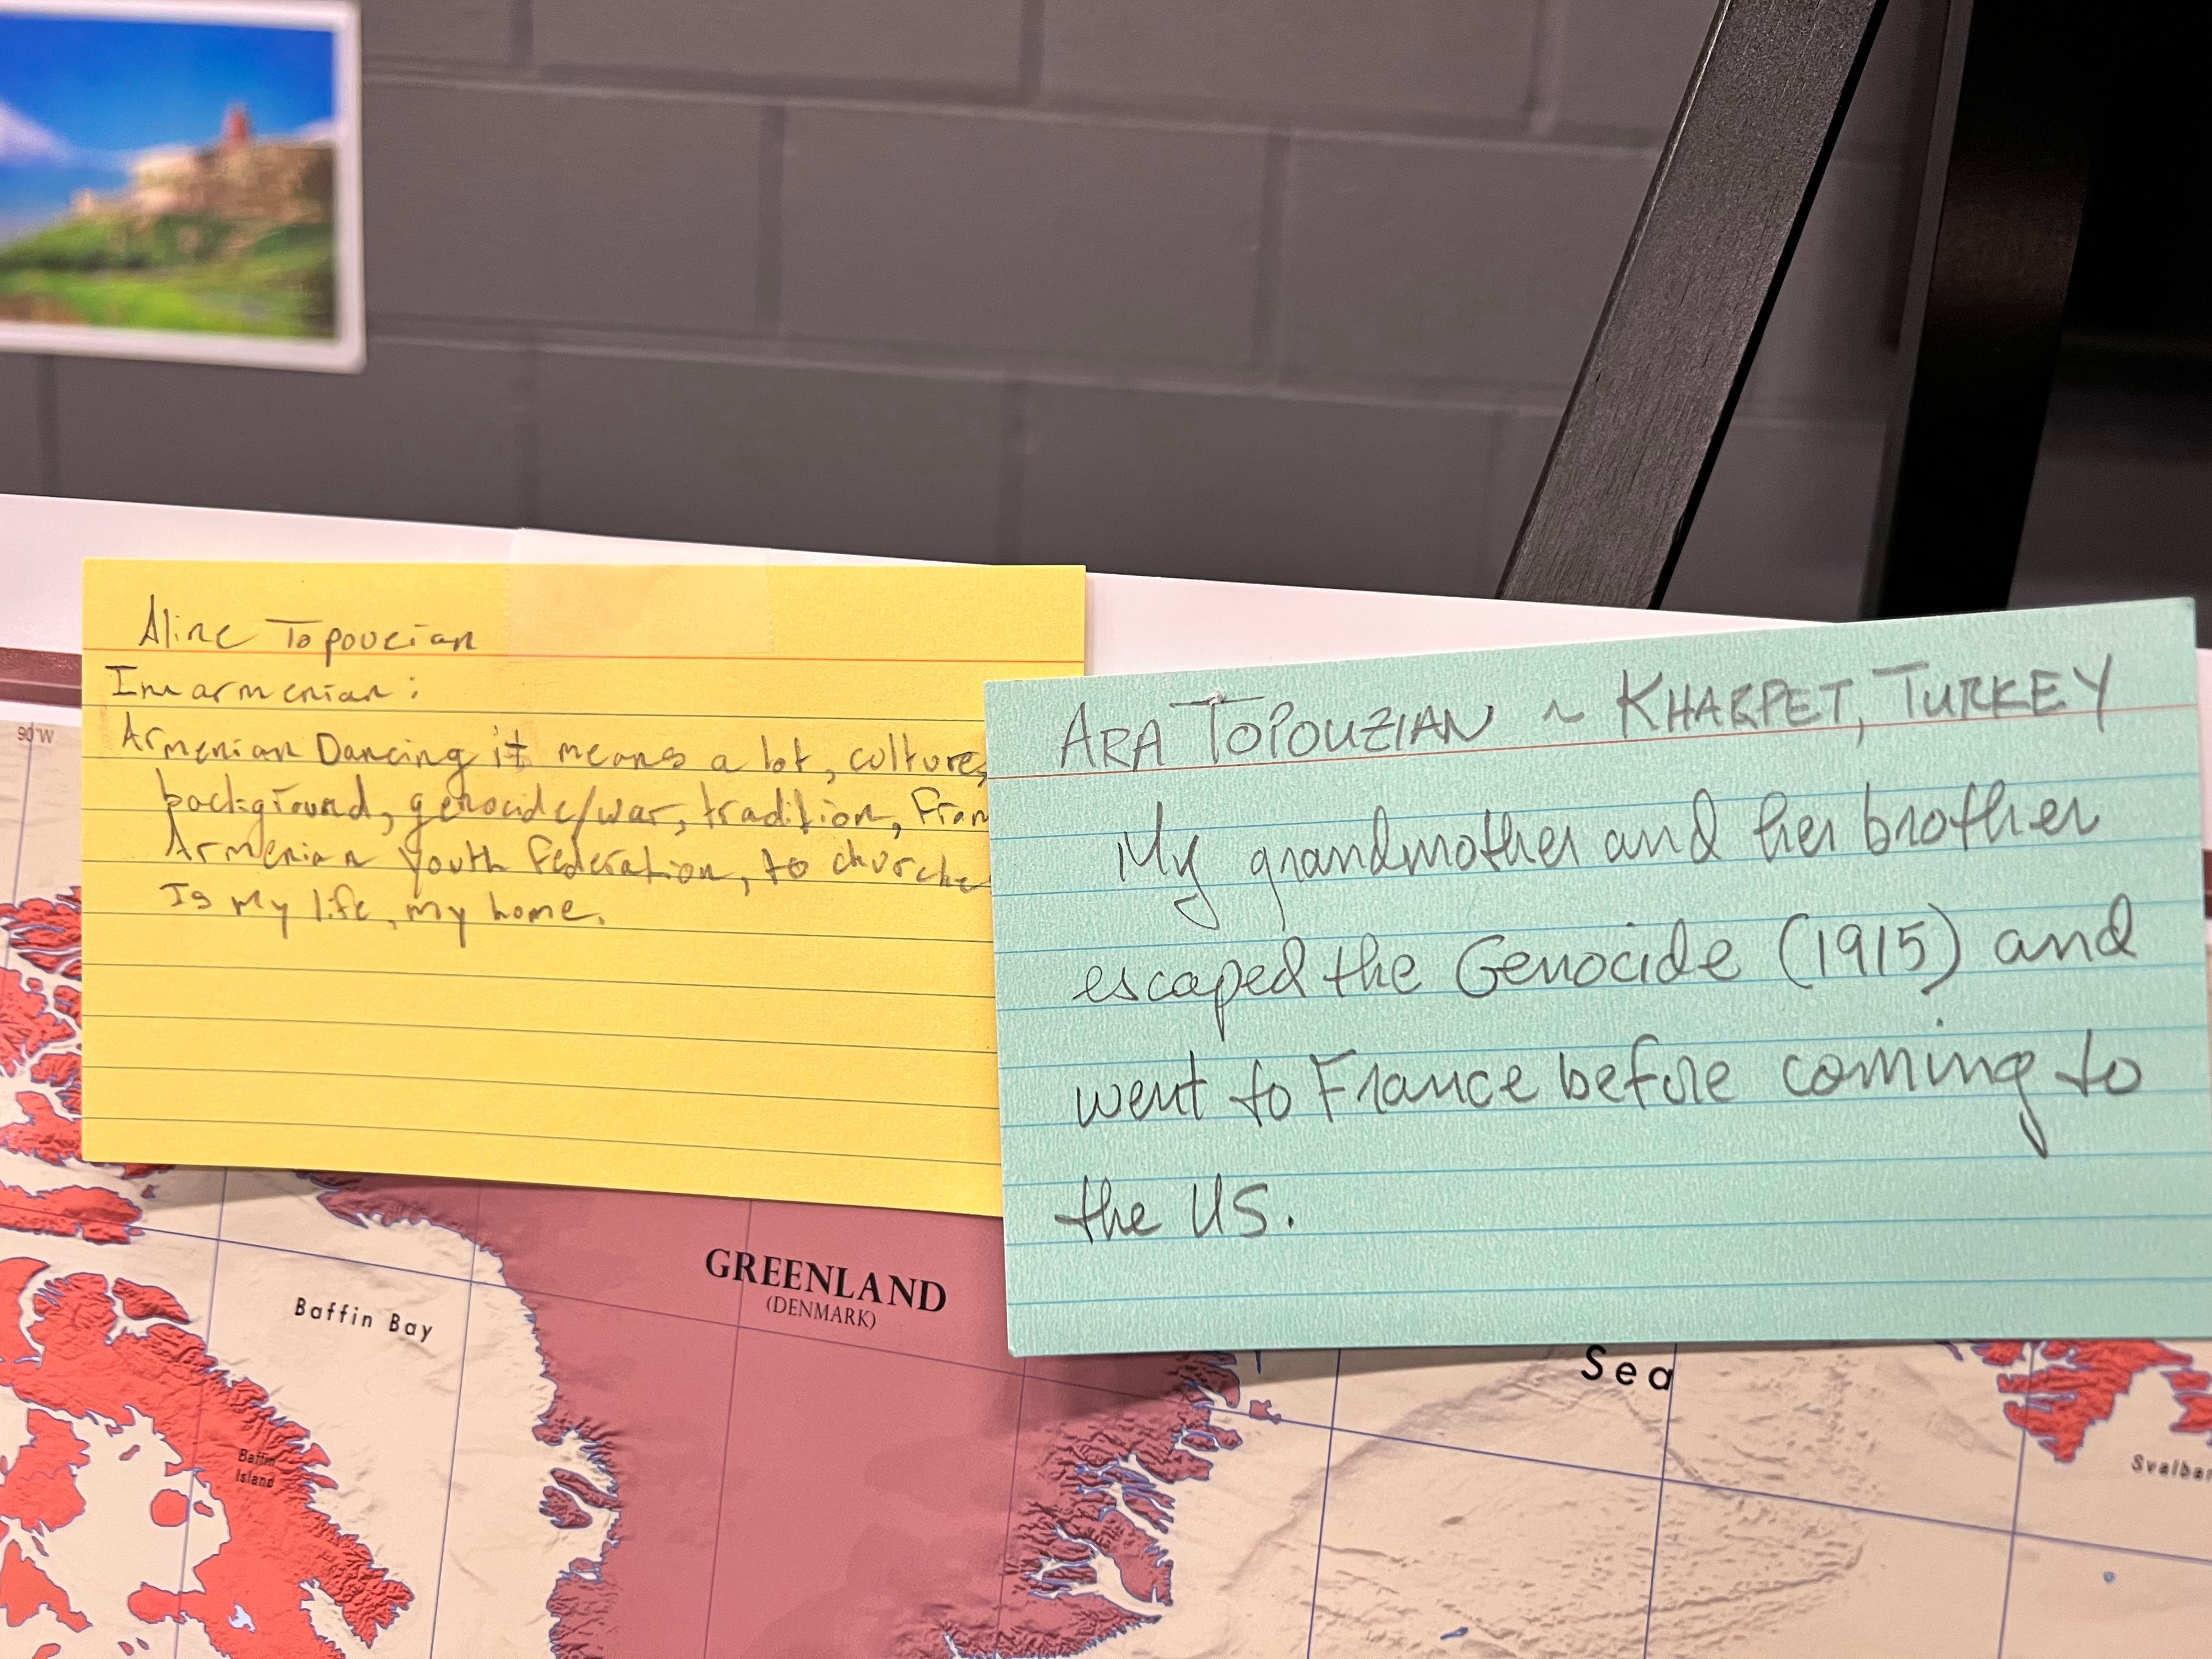 Aline Topoucian
Im armenian:
Armenian Dancing it means a lot, culture,
background, genocide/war, tradition, From
Armenian Youth Federation, to churche
Is my life, my home.
ARA TOPOUZIAN ~ KHARPET, TURKEY
My grandmother and her brother
escaped the Genocide (1915) and
went to France before coming to
the US.
90°W
GREENLAND
(DENMARK)
Baffin Bay
Baffin
Island
Sea
Svalbar